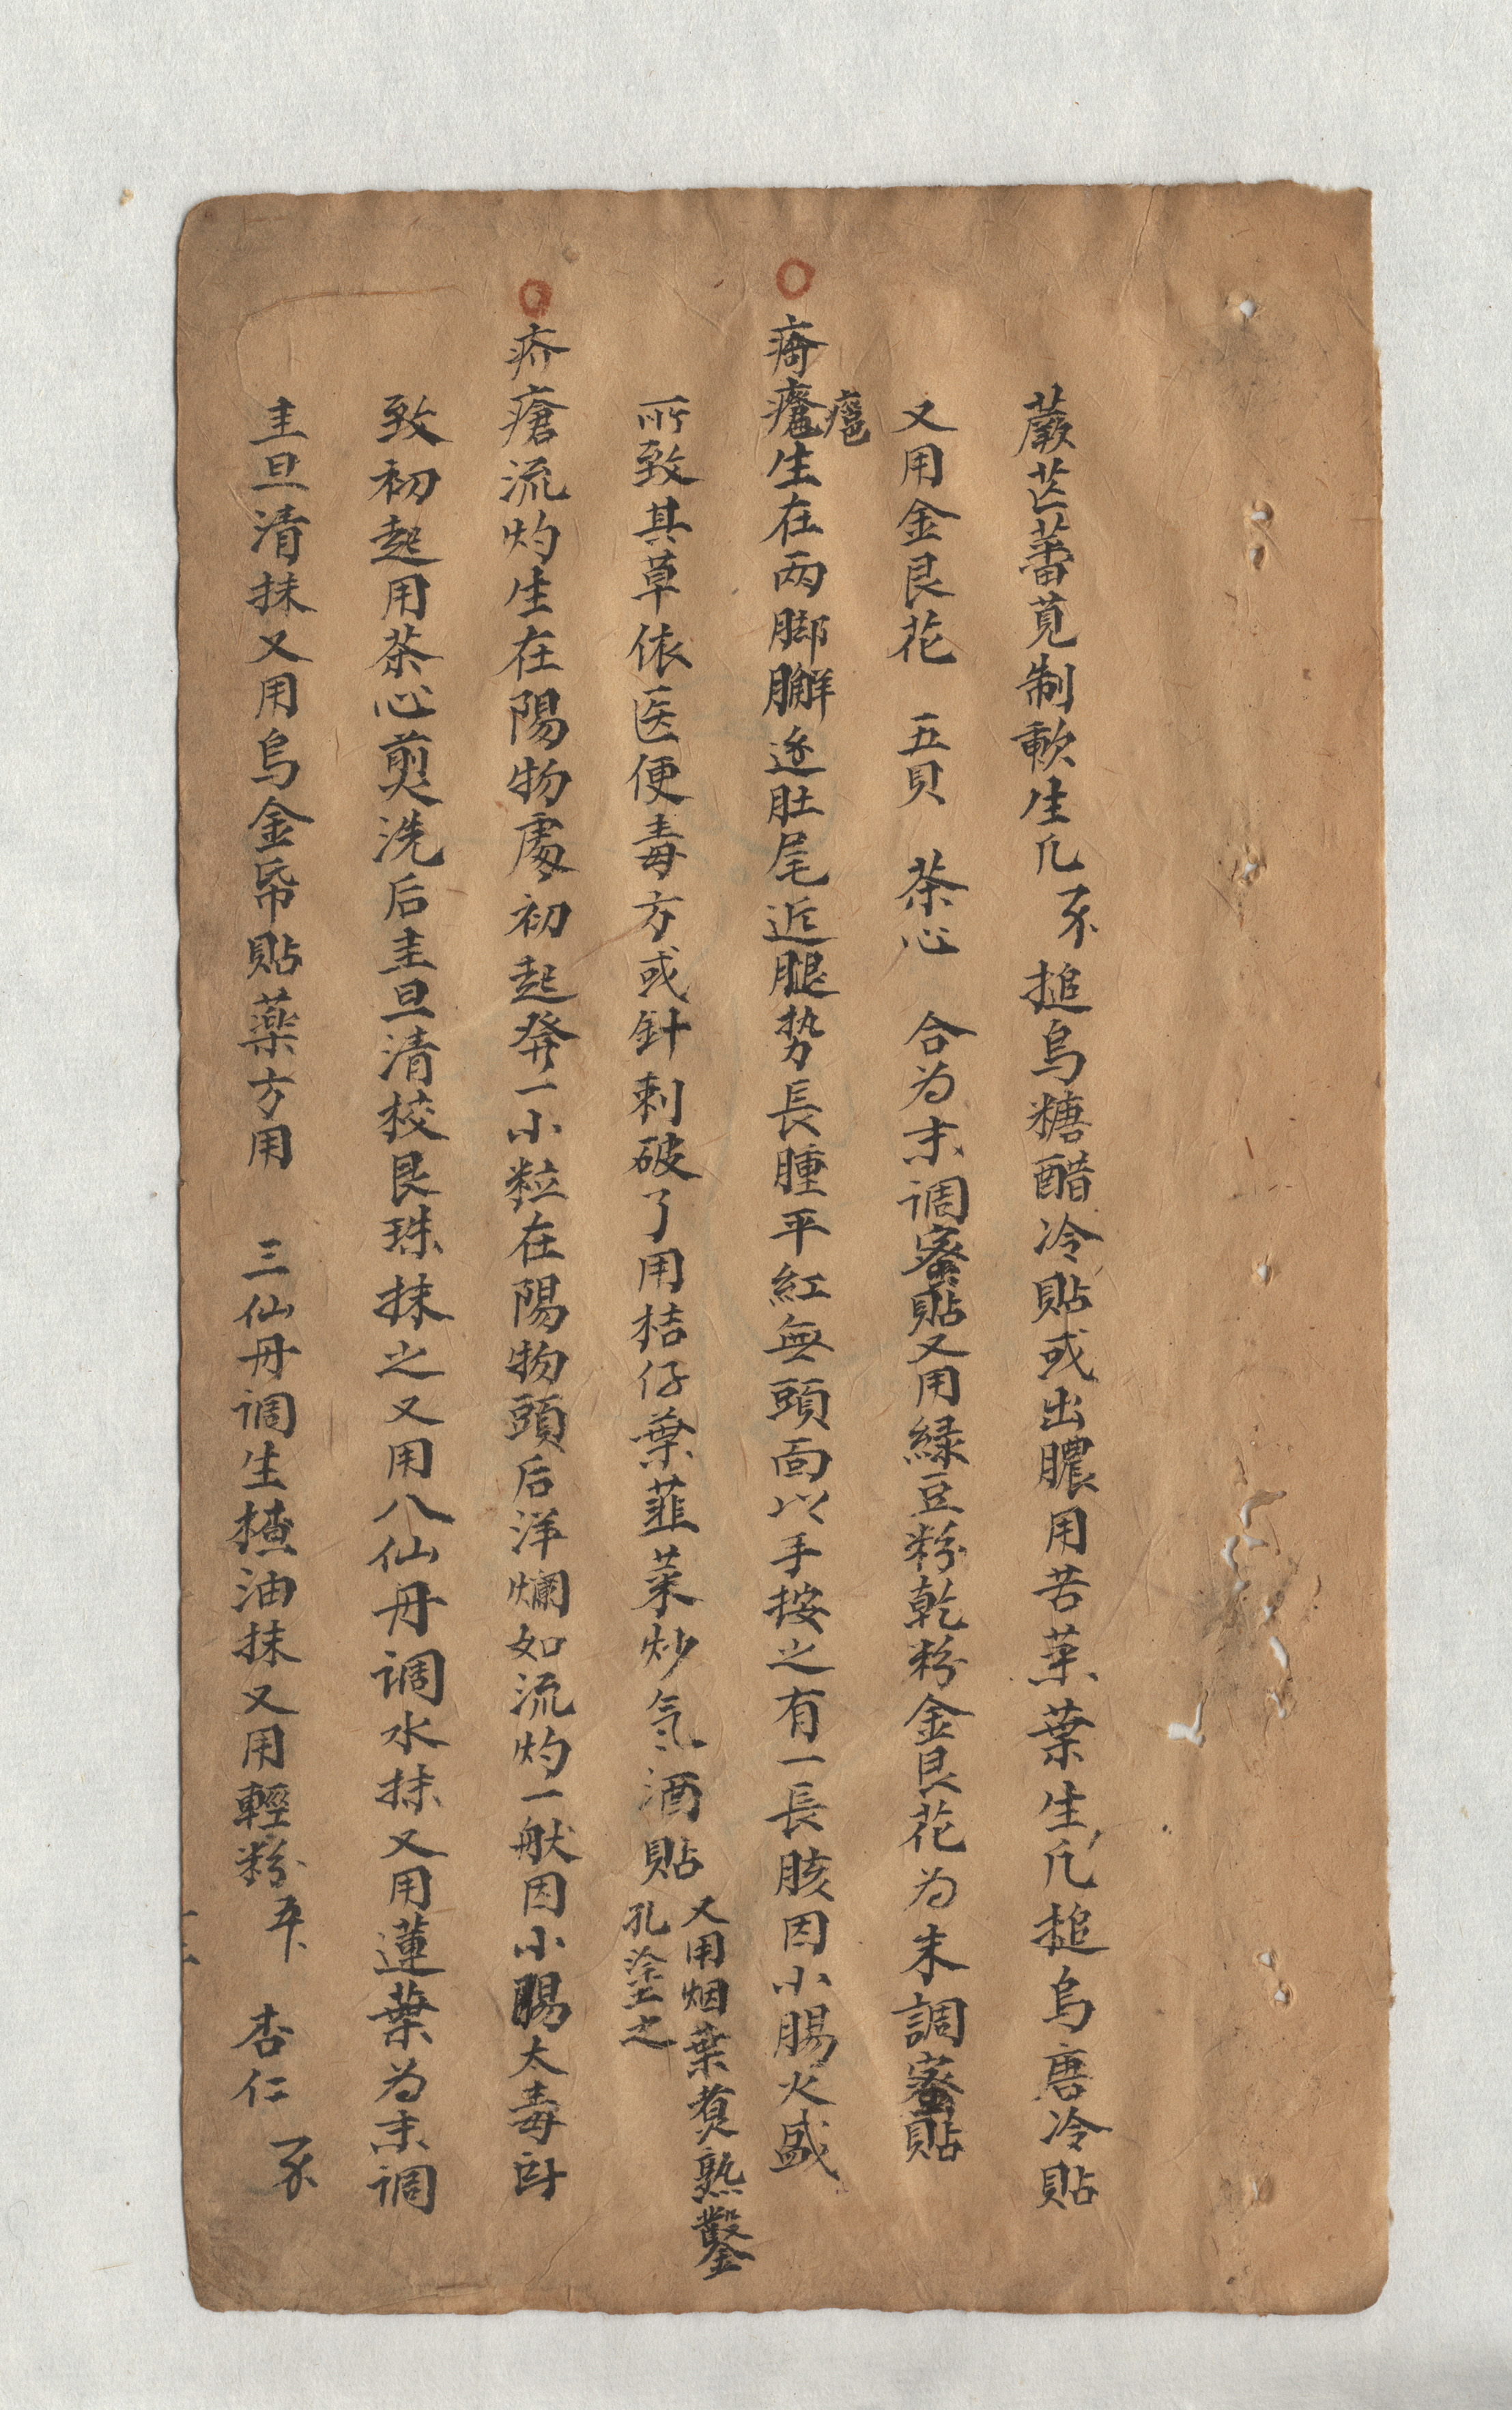 蕨芒蕃莧制軟生凡搥烏糖醋冷貼或出膿用苦葉葉生凡搥烏唐冷貼
又用金艮花 五貝 茶心 合为末调蜜貼又用緑豆粉乾粉金艮花为末調蜜貼
瘡生在两脚膀边肚尾近腿势長腫平紅無頭面以手按之有一長胲因小腸火盛
所致其草依医便毒方或針刺破了用桔仔葉韮菜炒気酒貼
又用烟葉煑熟鑿
孔塗之
疥瘡流灼生在陽物處初起發一小粒在陽物頭后洋爛如流灼一般因小腸太毒所
致初起用茶心煎洗后圭旦清校艮珠抹之又用八仙丹调水抹又用蓮葉为末调
圭旦清抹又用烏金帋貼薬方用 三仙丹调生楂油抹又用輕粉 杏仁